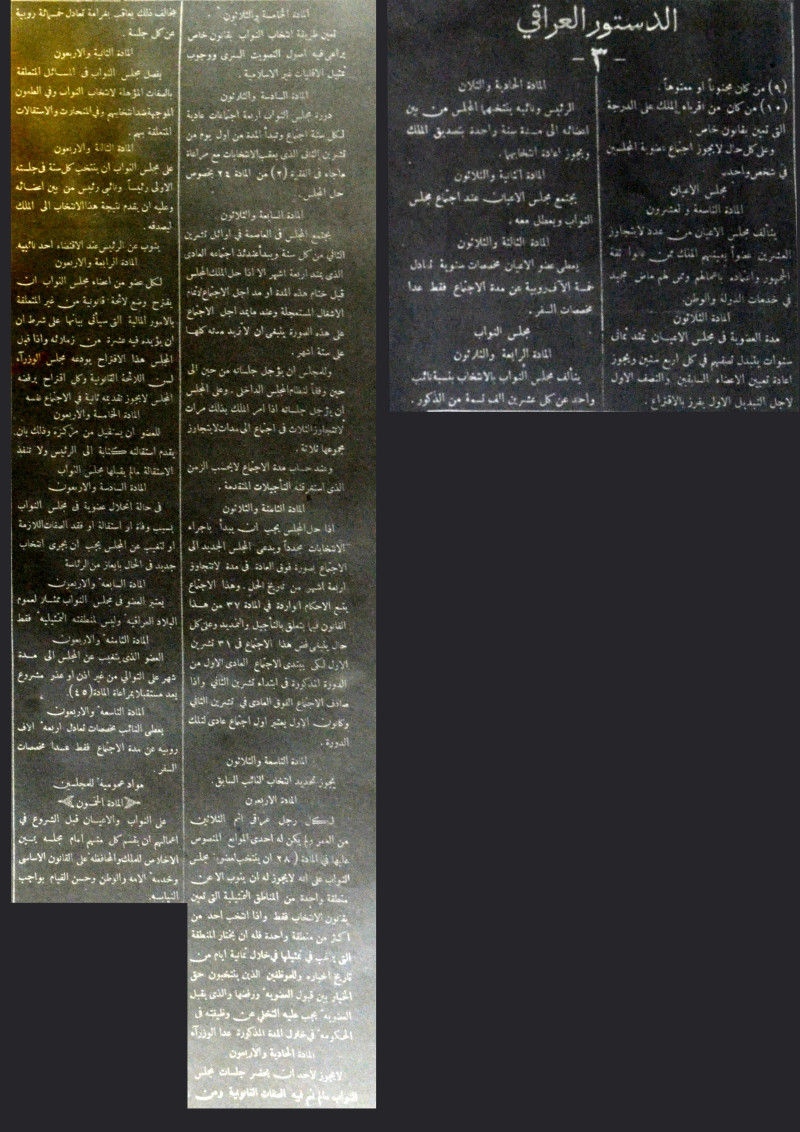 الدستور العراقي
- ٣ -
(٩) من كان مجنوناً او معتوهاً.
(١٠) من كان من اقرباء الملك على الدرجة
التي تعين بقانون خاص.
وعلى كل حال لايجوز اجتماع عضوية المجلسين
في شخص واحد.
مجلس الاعيان
المادة التاسعة والعشرون
يتألف مجلس الاعيان من عدد لايتجاوز
العشرين عضواً يعينهم الملك ممن نالوا ثقة
الجمهور واعتماده باعمالهم وممن لهم ماض مجيد
في خدمات الدولة والوطن.
المادة الثلاثون
مدة العضوية في مجلس الاعيان تمتد ثماني
سنوات يتبدل نصفهم في كل اربع سنين ويجوز
اعادة تعيين الاعضاء السابقين والنصف الاول
لاجل التبديل الاول يفرز بالاقتراع.
المادة الحادية والثلاثون
الرئيس ونائبه ينتخبهما المجلس من بين
اعضائه الى مدة سنة واحدة بتصديق الملك
ويجوز اعادة انتخابهما.
المادة الثانية والثلاثون
يجتمع مجلس الاعيان عند اجتماع مجلس
النواب ويعطل معه.
المادة الثالثة والثلاثون
يعطى عضو الاعيان مخصصات سنوية تعادل
خمسة الاف روبية عن مدة الاجتماع فقط عدا
مخصصات السفر.
مجلس النواب
المادة الرابعة والثلاثون
يتألف مجلس النواب بالانتخاب بنسبة نائب
واحد عن كل عشرين الف نسمة من الذكور.
المادة الخامسة والثلاثون
تعين طريقة انتخاب النواب بقانون خاص
يراعى فيه اصول التصويت السرى ووجوب
تمثيل الاقليات غير الاسلامية.
المادة السادسة والثلاثون
دورة مجلس النواب اربعة اجتماعات عادية
لكل سنة اجتماع وتبدأ المدة من اول يوم من
تشرين الثاني الذى يعقب الانتخابات مع مراعاة
ماجاء في الفقرة (٢) من المادة ٢٤ بخصوص
حل المجلس.
المادة السابعة والثلاثون
يجتمع المجلس فى العاصمة في اوائل تشرين
الثاني من كل سنة ويبدأ عندئذ اجتماعه العادى
الذى يمتد اربعة اشهر الا اذا حل الملك المجلس
قبل ختام هذه المدة او مد اجل الاجتماع لاتمام
الاشغال المستعجلة وعند مايمد اجل الاجتماع
على هذه الصورة ينبغى ان لا تزيد مدته كلها
على ستة اشهر.
وللمجلس ان يؤجل جلساته من حين الى
حين وفقاً لنظام المجلس الداخلى. وعلى المجلس
ان يؤجل جلساته اذا امر الملك بذلك مرات
لاتتجاوز الثلاث فى اجتماع الى مدات لايتجاوز
مجموعها ثلاثة.
وعند حساب مدة الاجتماع لايحسب الزمن
الذى استغرقته التأجيلات المتقدمة.
المادة الثامنة والثلاثون
اذا حل المجلس يجب ان يبدأ باجراء
الانتخابات مجدداً ويدعى المجلس الجديد الى
الاجتماع بصورة فوق العادة في مدة لاتتجاوز
اربعة اشهر من تاريخ الحل. وهذا الاجتماع
يتبع الاحكام الواردة في المادة ٣٧ من هذا
القانون فيما يتعلق بالتأجيل والتمديد وعلى كل
حال ينبغى فض هذا الاجتماع فى ٣١ تشرين
الاول لكى يبتدى الاجتماع العادى الاول من
الدورة المذكورة فى ابتداء تشرين الثاني واذا
صادف الاجتماع الفوق العادى فى تشرين الثاني
وكانون الاول يعتبر اول اجتماع عادى لتلك
الدورة.
المادة التاسعة والثلاثون
يجوز تجديد انتخاب النائب السابق.
المادة الاربعون
لكل رجل عراقى اتم الثلاثين
من العمر ولم يكن له احدى الموانع المنصوص
عليها في المادة (٢٨ ان ينتخب لعضوية مجلس
النواب على انه لايجوز له ان ينوب الا عن
منطقة واحدة من المناطق التمثيلية التى تعين
بقانون الانتخاب فقط واذا انتخب احد من
اكثر من منطقة واحدة فله ان يختار المنطقة
التى يرغب فى تمثيلها فى خلال ثمانية ايام من
تاريخ اخباره. والموظفين الذين ينتخبون حق
الخيار بين قبول العضوية ورفضها والذى يقبل
العضوية يجب عليه التخلي عن وظيفته فى
الحكومة فى خلال المدة المذكورة عدا الوزرآء
المادة الحادية والاربعون
لايجوز لاحد ان يحضر جلسات مجلس
النواب مالم تتم فيه الصفات القانونية ومن
يخالف ذلك يعاقب بغرامة تعادل خمسمائة روبية
عن كل جلسة.
المادة الثانية والاربعون
يفصل مجلس النواب فى المسائل المتعلقة
بالصفات المؤهلة لانتخاب النواب وفي الطعون
الموجهة ضد انتخابهم وفى المنحلات والاستقالات
المتعلقة بهم.
المادة الثالثة والاربعون
على مجلس النواب ان ينتخب كل سنة فى جلسته
الاولى رئيساً ونائبى رئيس من بين اعضائه
وعليه ان يقدم نتيجة هذا الانتخاب الى الملك
ليصدقه.
ينوب عن الرئيس عند الاقتضاء احد نائبيه
المادة الرابعة والاربعون
لكل عضو من اعضاء مجلس النواب ان
يقترح وضع لائحة قانونية من غير المتعلقة
بالامور المالية التى سيأتى بيانها على شرط ان
ان يؤيده فيه عشرة من زملائه واذا قبل
المجلس هذا الاقتراح يودعه مجلس الوزرآء
لسن اللائحة القانونية وكل اقتراح يرفضه
المجلس لايجوز تقديمه ثانية فى الاجتماع نفسه
المادة الخامسة والاربعون
للعضو ان يستقيل من مركزه وذلك بان
يقدم استقالته كتابة الى الرئيس ولا تنفذ
الاستقالة مالم يقبلها مجلس النواب
المادة السادسة والاربعون
فى حالة انحلال عضوية فى مجلس النواب
بسبب وفاة او استقالة او فقد الصفات اللازمة
او لتغيب عن المجلس يجب ان يجرى انتخاب
جديد فى الحال بايعاز من الرئاسة
المادة السابعة والاربعون
يعتبر العضو فى مجلس النواب ممثلاً لعموم
البلاد العراقية وليس لمنطقته التمثيلية فقط
المادة الثامنة والاربعون
العضو الذى يتغيب عن المجلس الى مدة
شهر على التوالي من غير اذن او عذر مشروع
يعد مستقيلا بمراعاة المادة (٤٥).
المادة التاسعة والاربعون
يعطى النائب مخصصات تعادل اربعة الاف
روبيه عن مدة الاجتماع فقط عدا مخصصات
السفر.
مواد عمومية للمجلسين
المادة الخمسون
على النواب والاعيان قبل الشروع في
اعمالهم ان يقسم كل منهم امام مجلسه يمين
الاخلاص للملك والمحافظة على القانون الاساسى
وخدمة الامة والوطن وحسن القيام بواجب
النيابة.